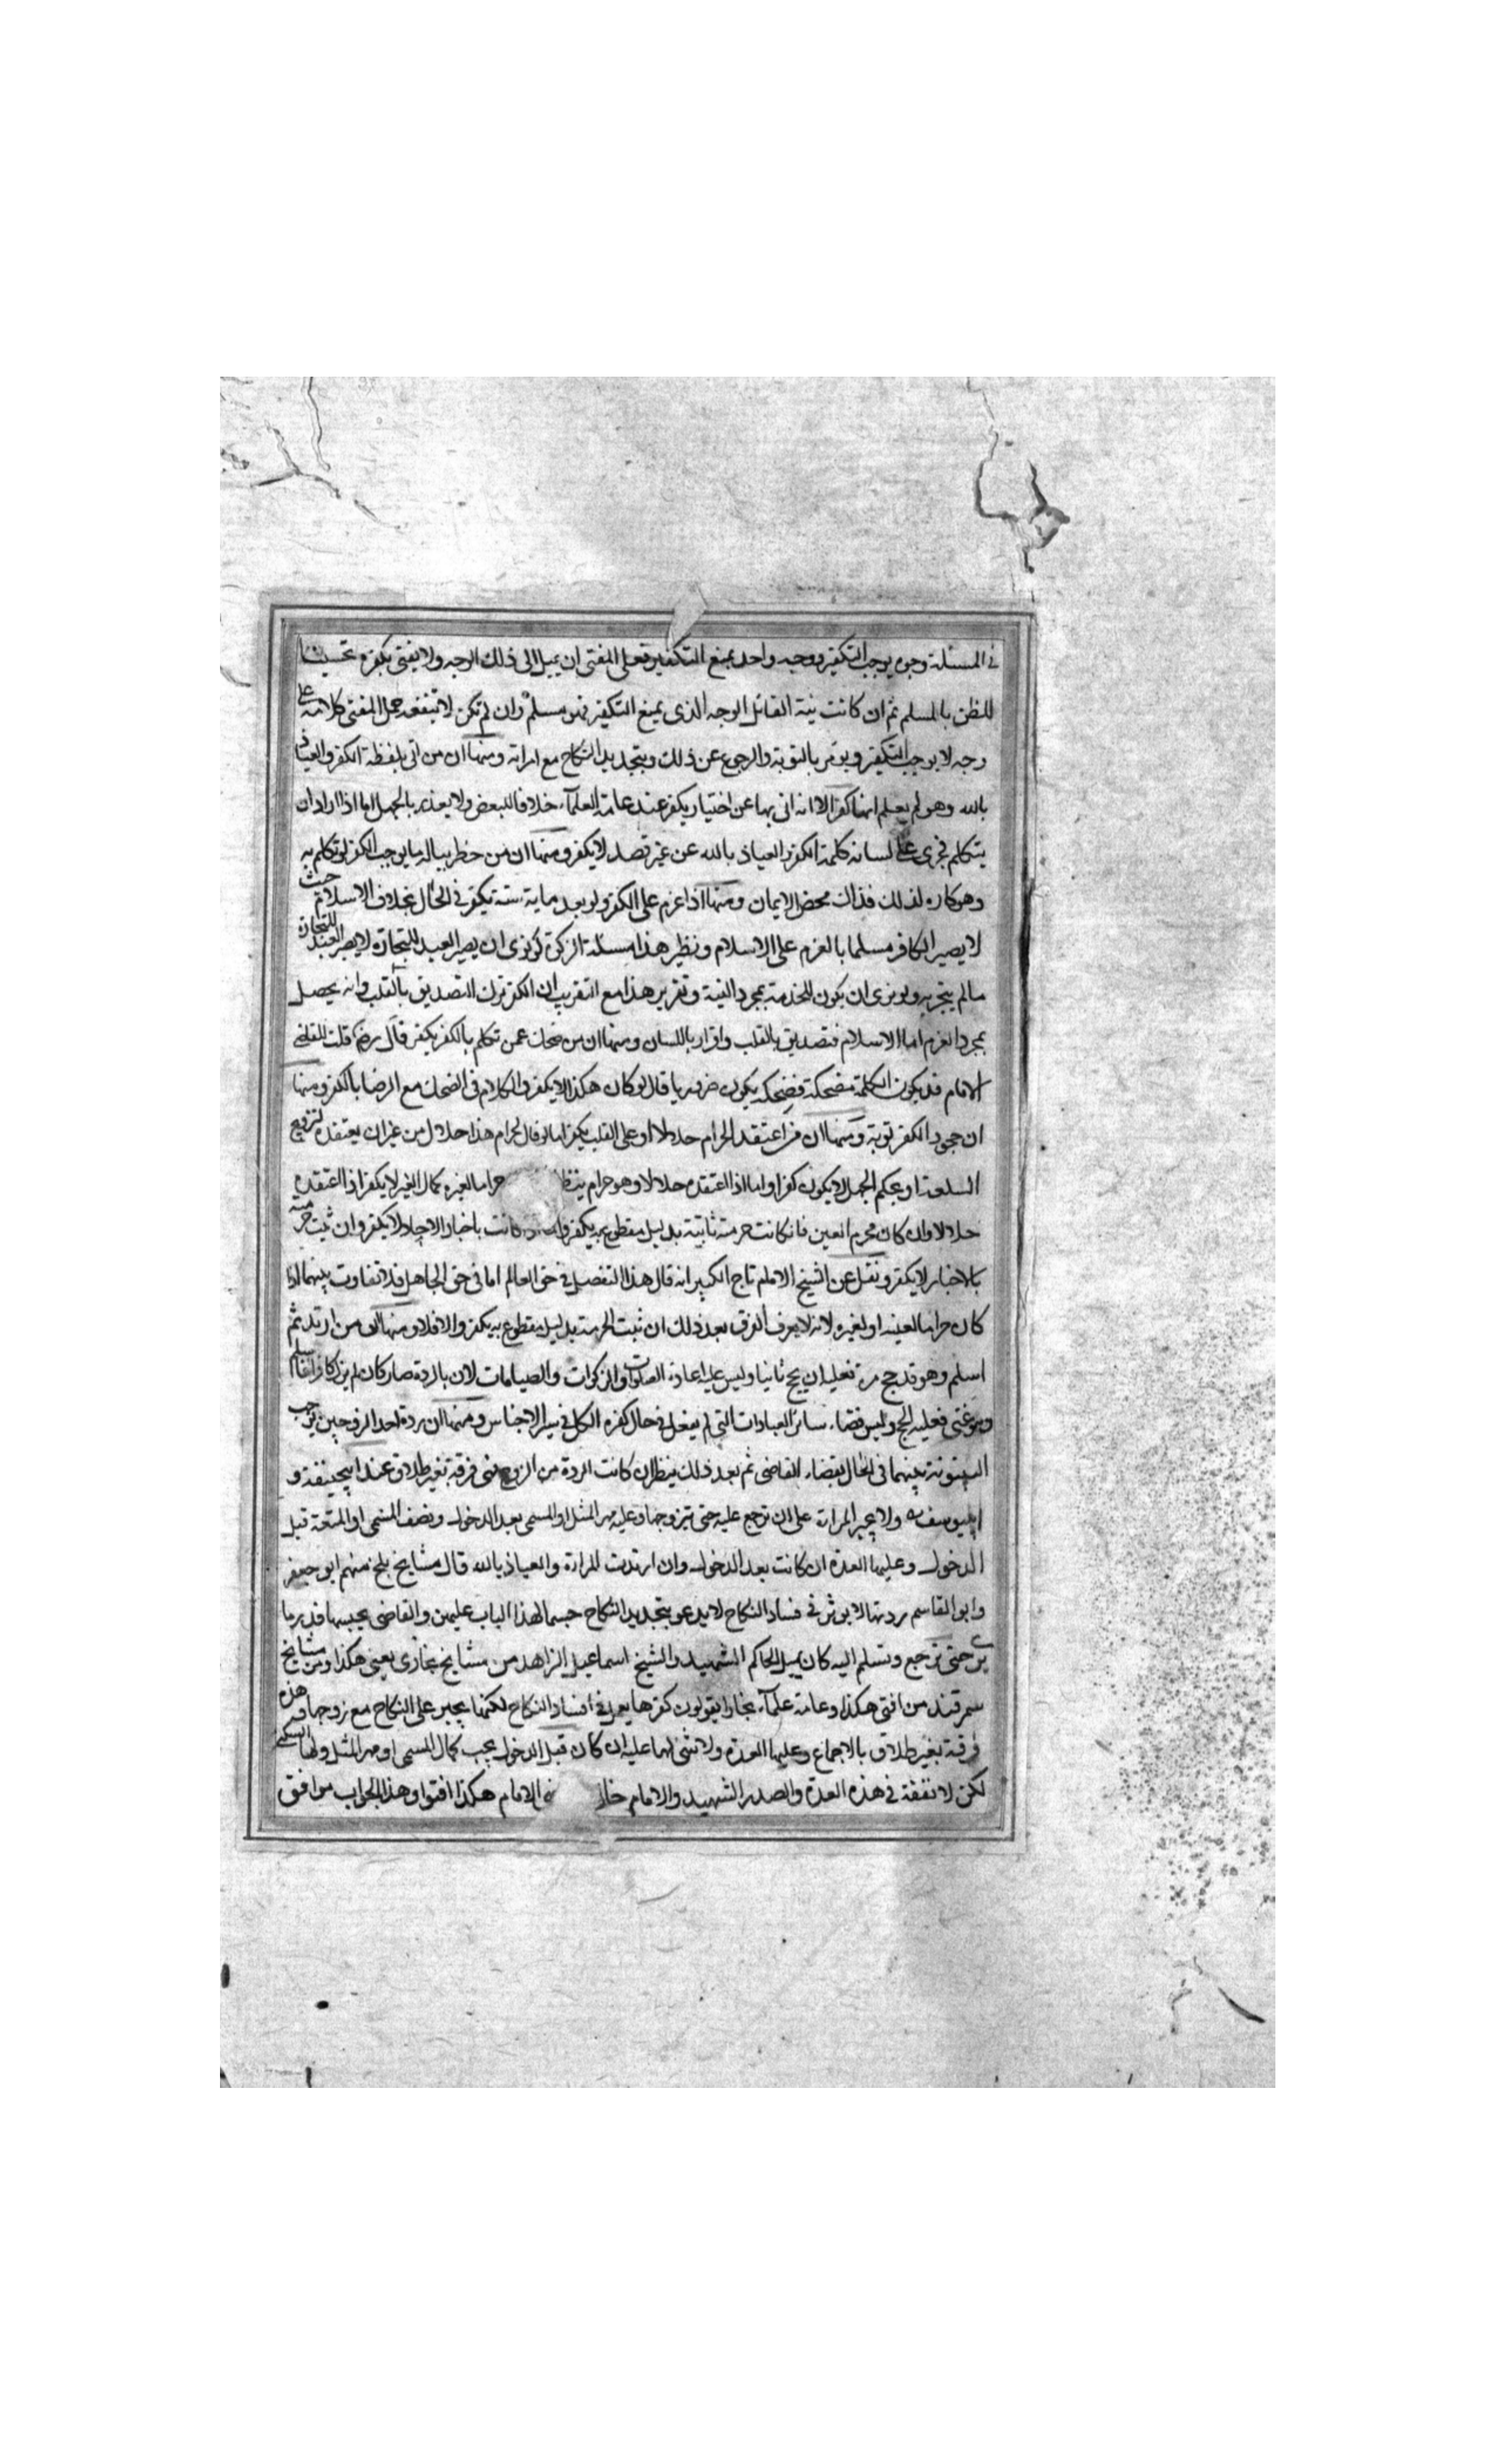 في المسئلة وجوه يوجب التكفير ووجه واحد يمنع التكفير فعلى المفتى ان يميل الى ذلك الوجه ولا يفتى بكفره تحسينا
للظن بالمسلم ثم ان كانت نية القائل الوجه الذى يمنع التكفير فهو مسلم وان لم تكن لا تنفعه حمل المفتى كلامه على
وجه لا يوجب التكفير ويؤمر بالتوبة والرجوع عن ذلك وبتجديد النكاح مع امراته ومنها ان من اتى بلفظة الكفر والعياذ
بالله وهو لم يعلم انها كفر الا انه اتى بها عن اختيار يكفر عند عامة العلمآء خلافا للبعض ولا يعذر بالجهل اما اذا اراد ان
يتكلم فجرى على لسانه كلمة الكفر والعياذ بالله عن غير قصد لا يكفر ومنها ان من خطر بباله ما يوجب الكفر لو تكلم به
وهو كاره لذلك فذاك محض الايمان ومنها اذا عزم على الكفر ولو بعد ماية سنة يكفر في الحال بخلاف الاسلام حيث
لا يصير الكافر مسلما بالعزم على الاسلام ونظير هذا مسئلة الزكوة لو نوى ان يصير العبد للتجارة لا يصير العبد للتجارة
مالم يتجر به ولو نوى ان يكون للخدمة بمجرد النية وتقرير هذا مع التقريب ان الكفر ترك التصديق بالقلب وانه يحصل
بمجرد العزم اما الاسلام فتصديق بالقلب واقرار باللسان ومنها ان من ضحك عمن تكلم بالكفر يكفر قال رض قلت للقاضى
الامام قد يكون الكلمة مضحكة فضحكه يكون ضروريا قال لو كان هكذا لا يكفر والكلام فى الضحك مع الرضا بالكفر ومنها
ان جحود الكفر توبة ومنها ان من اعتقد الحرام حلالا او على القلب يكفر اما لو قال لحرام هذا حلال من غير ان يعتقده لترويج
السلعة او بحكم الجهل لا يكون كفرا واما اذا اعتقده حلالا وهو حرام ينظر حراما لغيره كمال الغير لا يكفر اذا اعتقده
حلالا وان كان محرم العين فان كانت حرمته ثابتة بدليل مقطوع به يكفر كانت باخبار الاحاد لا يكفر وان ثبت حرمته
بالاخبار لا يكفر ونقل عن الشيخ الامام تاج الكبير انه قال هذا التفصيل في حق العالم اما في حق الجاهل فلا تفاوت بينهما اذا
كان حراما لعينه او لغيره لانه لا يعرف الفرق بعد ذلك ان ثبت الحرمة بدليل مقطوع به يكفر والا فلا ومنها ان من ارتد ثم
اسلم وهو قد حج مرة فعليه ان يحج ثانيا وليس عليه اعادة الصلوات والزكوات والصيامات لان بالردة صار كان لم يزل كافرا فاسلم
وهو غني فعليه الحج وليس قضاء سائر العبادات التى لم يفعل في حال كفره الكل في سير الاجناس ومنها ان ردة احد الزوجين يوجب
البينونة بينهما فى الحال بقضاء القاضى ثم بعد ذلك ينظر ان كانت الردة من الزوج فهى فرقة بغير طلاق عند ابيحنيفة و
ابييوسف ولا يجبر المراة على ان ترجع عليه حتى يتزوجها وعليه مهر المثل او المسمى بعد الدخول ونصف المسمى او المتعة قبل
الدخول وعليها العدة ان كانت بعد الدخول وان ارتدت المراة والعياذ بالله قال مشايخ بلخ منهم ابو جعفر
وابو القاسم ردتها لا يوثر فى فساد النكاح لا يدعو بتجديد النكاح حسما لهذا الباب عليهن والقاضى يحبسها قدر ما
يرى حتى ترجع وتسلم اليه كان يميل الحاكم الشهيد والشيخ اسماعيل الزاهد من مشايخ بخارى يعنى هكذا ومن مشايخ
سمرقند من افتى هكذا وعامة علمآء بخارا يقولون كفرها يعمل في افساد النكاح لكنها يجبر على النكاح مع زوجها وهذه
فرقة بغير طلاق بالاجماع وعليها العدة ولا شى لها عليه ان كان قبل الدخول يجب كمال المسمى او مهر المثل ولها السكنى
لكن لا نفقة في هذه العدة والصدر الشهيد والامام الامام هكذا افتوا وهذا الجواب موافق